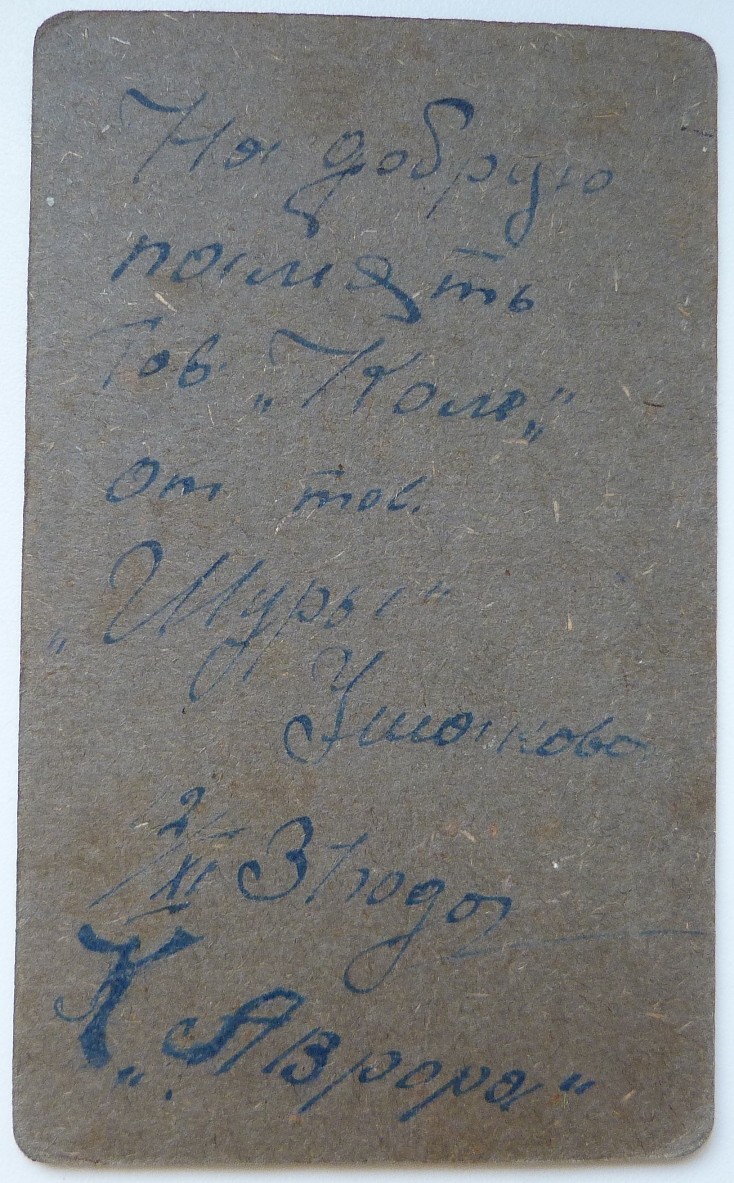 На добрую
память
Тов. „Коле„"
от тов.
„Шуры"
Ушаково
2/XI 31 года
К „Аврора"